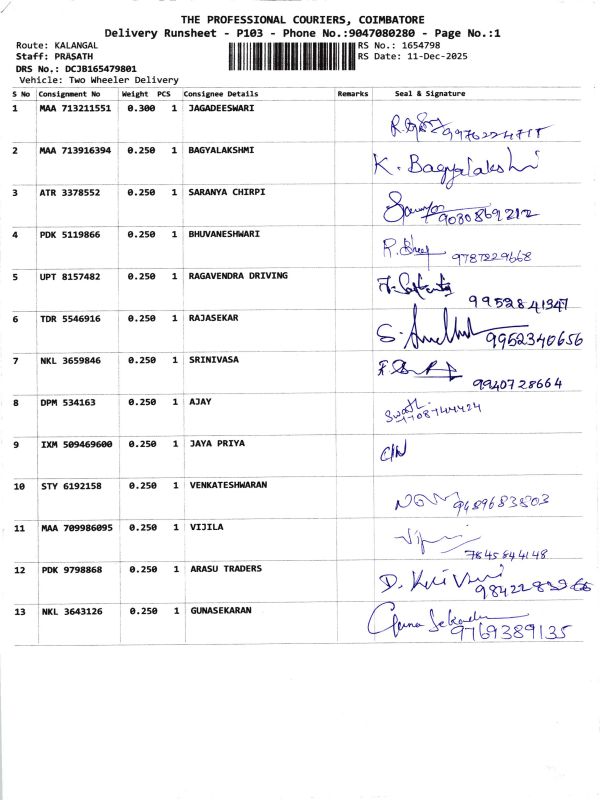 THE PROFESSIONAL COURIERS, COIMBATORE
Delivery Runsheet - P103 - Phone No.:9047080280 - Page No.:1
Route: KALANGAL RS No.: 1654798
Staff: PRASATH RS Date: 11-Dec-2025
DRS No.: DCJB165479801
Vehicle: Two Wheeler Delivery
S No Consignment No Weight PCS Consignee Details Remarks Seal & Signature
1 MAA 713211551 0.300 1 JAGADEESWARI
2 MAA 713916394 0.250 1 BAGYALAKSHMI K. Bagyalakshmi
3 ATR 3378552 0.250 1 SARANYA CHIRPI 9080869212
4 PDK 5119866 0.250 1 BHUVANESHWARI 9787229668
5 UPT 8157482 0.250 1 RAGAVENDRA DRIVING 9952841347
6 TDR 5546916 0.250 1 RAJASEKAR 9952340656
7 NKL 3659846 0.250 1 SRINIVASA 9940728664
8 DPM 534163 0.250 1 AJAY
9 IXM 509469600 0.250 1 JAYA PRIYA
10 STY 6192158 0.250 1 VENKATESHWARAN 9489683803
11 MAA 709986095 0.250 1 VIJILA 7845844148
12 PDK 9798868 0.250 1 ARASU TRADERS
13 NKL 3643126 0.250 1 GUNASEKARAN Guna Sekaran 9769389135